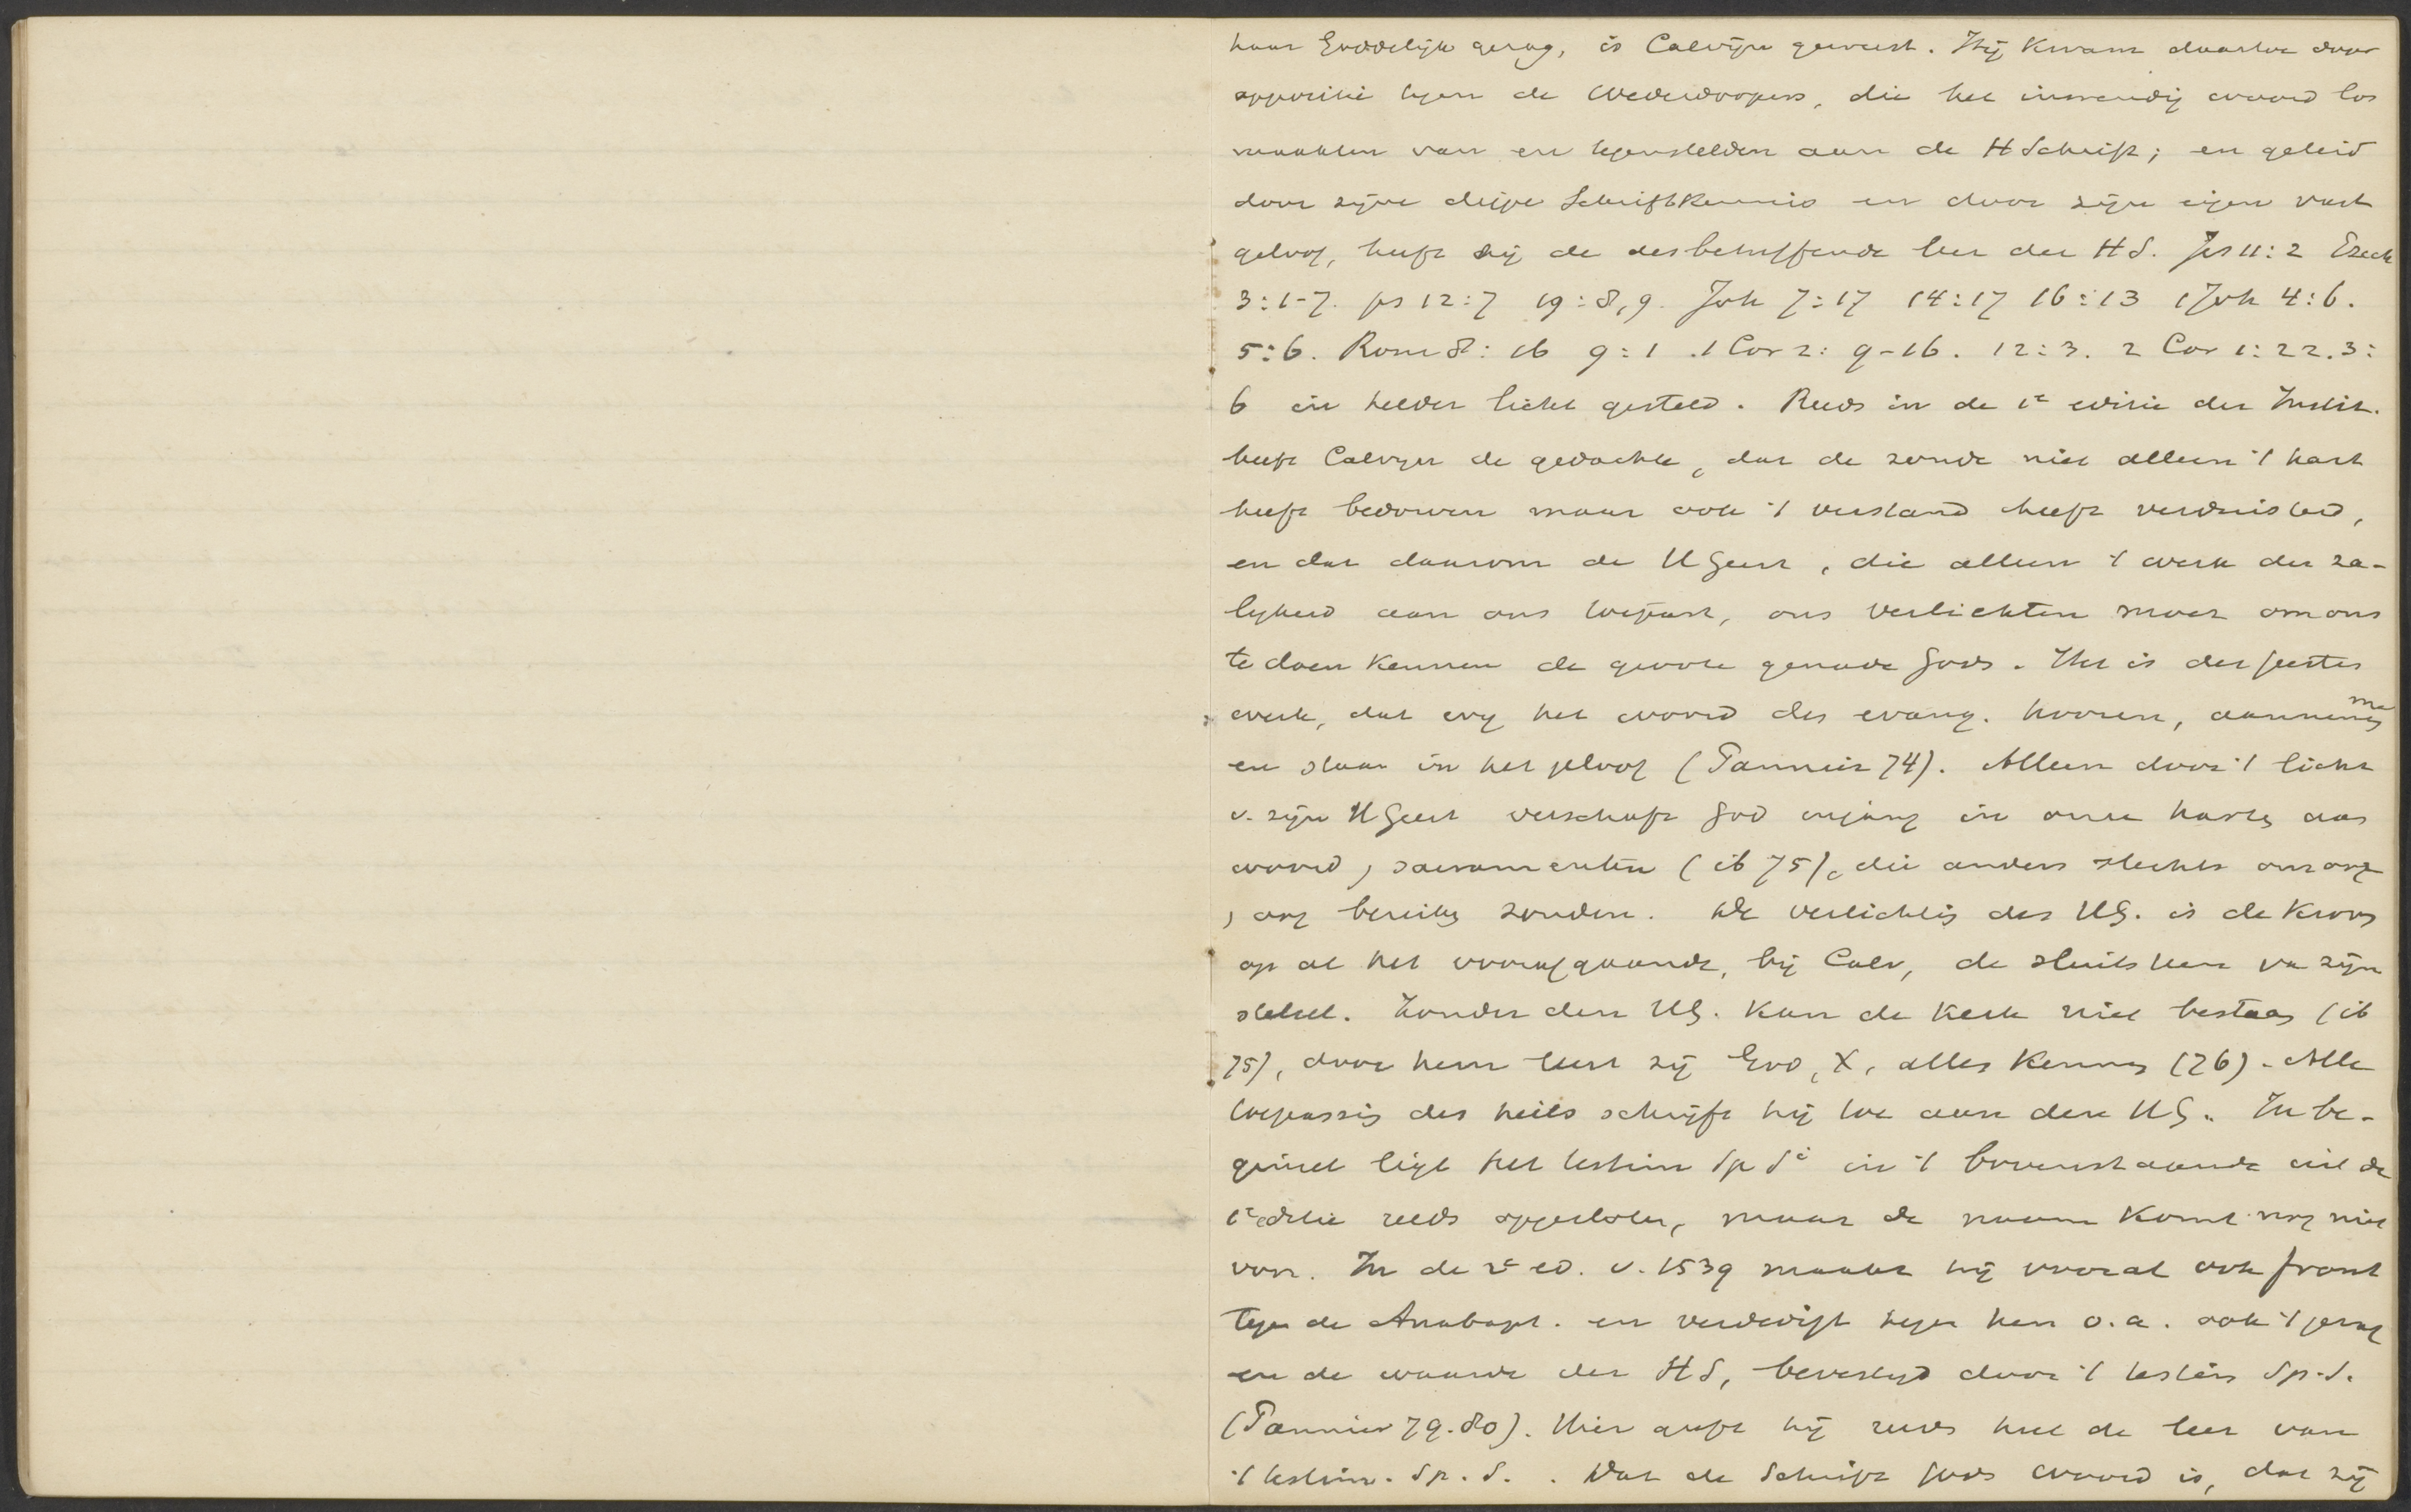 haar Goddelijk gezag, is Calvijn geweest. Hij kwam daartoe door
oppositie tegen de Wederdoopers, die het inwendig woord los
maakten van en tegenstelden aan de H Schrift; en geleid
door zijne diepe Schriftkennis en door zijn eigen vast
geloof, heeft hij de desbetreffende leer der HS. Jes 11:2 Ezech
3:1-7. ps 12:7 19:8,9. Joh 7:17 14:17 16:13 1 Joh 4:6.
5:6. Rom 8:16 9:1 . 1 Cor 2:9-16. 12:3. 2 Cor 1:22. 3:
6 in helder licht gesteld. Reeds in de 1e editie der Instit.
heeft Calvijn de gedachte, dat de zonde niet alleen 't hart
heeft bedorven maar ook 't verstand heeft verduisterd,
en dat daarom de HGeest, die alleen 't werk der za-
ligheid aan ons toepast, ons verlichten moet om ons
te doen kennen de groote genade Gods. Het is des Geestes
werk, dat wij het woord des evang. hooren, aannemen
en staan in het geloof (Pannier 74). Alleen door 't licht
v. zijn HGeest verschaft God ingang in onze harten aan
woord, sacramenten (ib 75), die anders slechts ons oog
, oor bereiken zouden. De verlichting des HG. is de kroon
op al het voorafgaande, bij Calv, de sluitsteen van zijn
stelsel. Zonder den HG. kan de kerk niet bestaan (ib
75), door hem leert zij God, X, alles kennen (76). Alle
toepassing des heils schrijft hij toe aan den HG. In be-
ginsel ligt het testim Sp Si in 't bovenstaande uit de
1e editie reeds opgesloten, maar de naam komt nog niet
voor. In de 2e ed. v. 1539 maakt hij vooral ook front
tegen de Anabapt. en verdedigt tegen hen o.a. ook 't gezag
en de waarde der HS, bevestigd door 't testim Sp. S.
(Pannier 79.80). Hier geeft hij reeds heel de leer van
't testim. Sp. S. . Dat de Schrift Gods woord is, dat zij